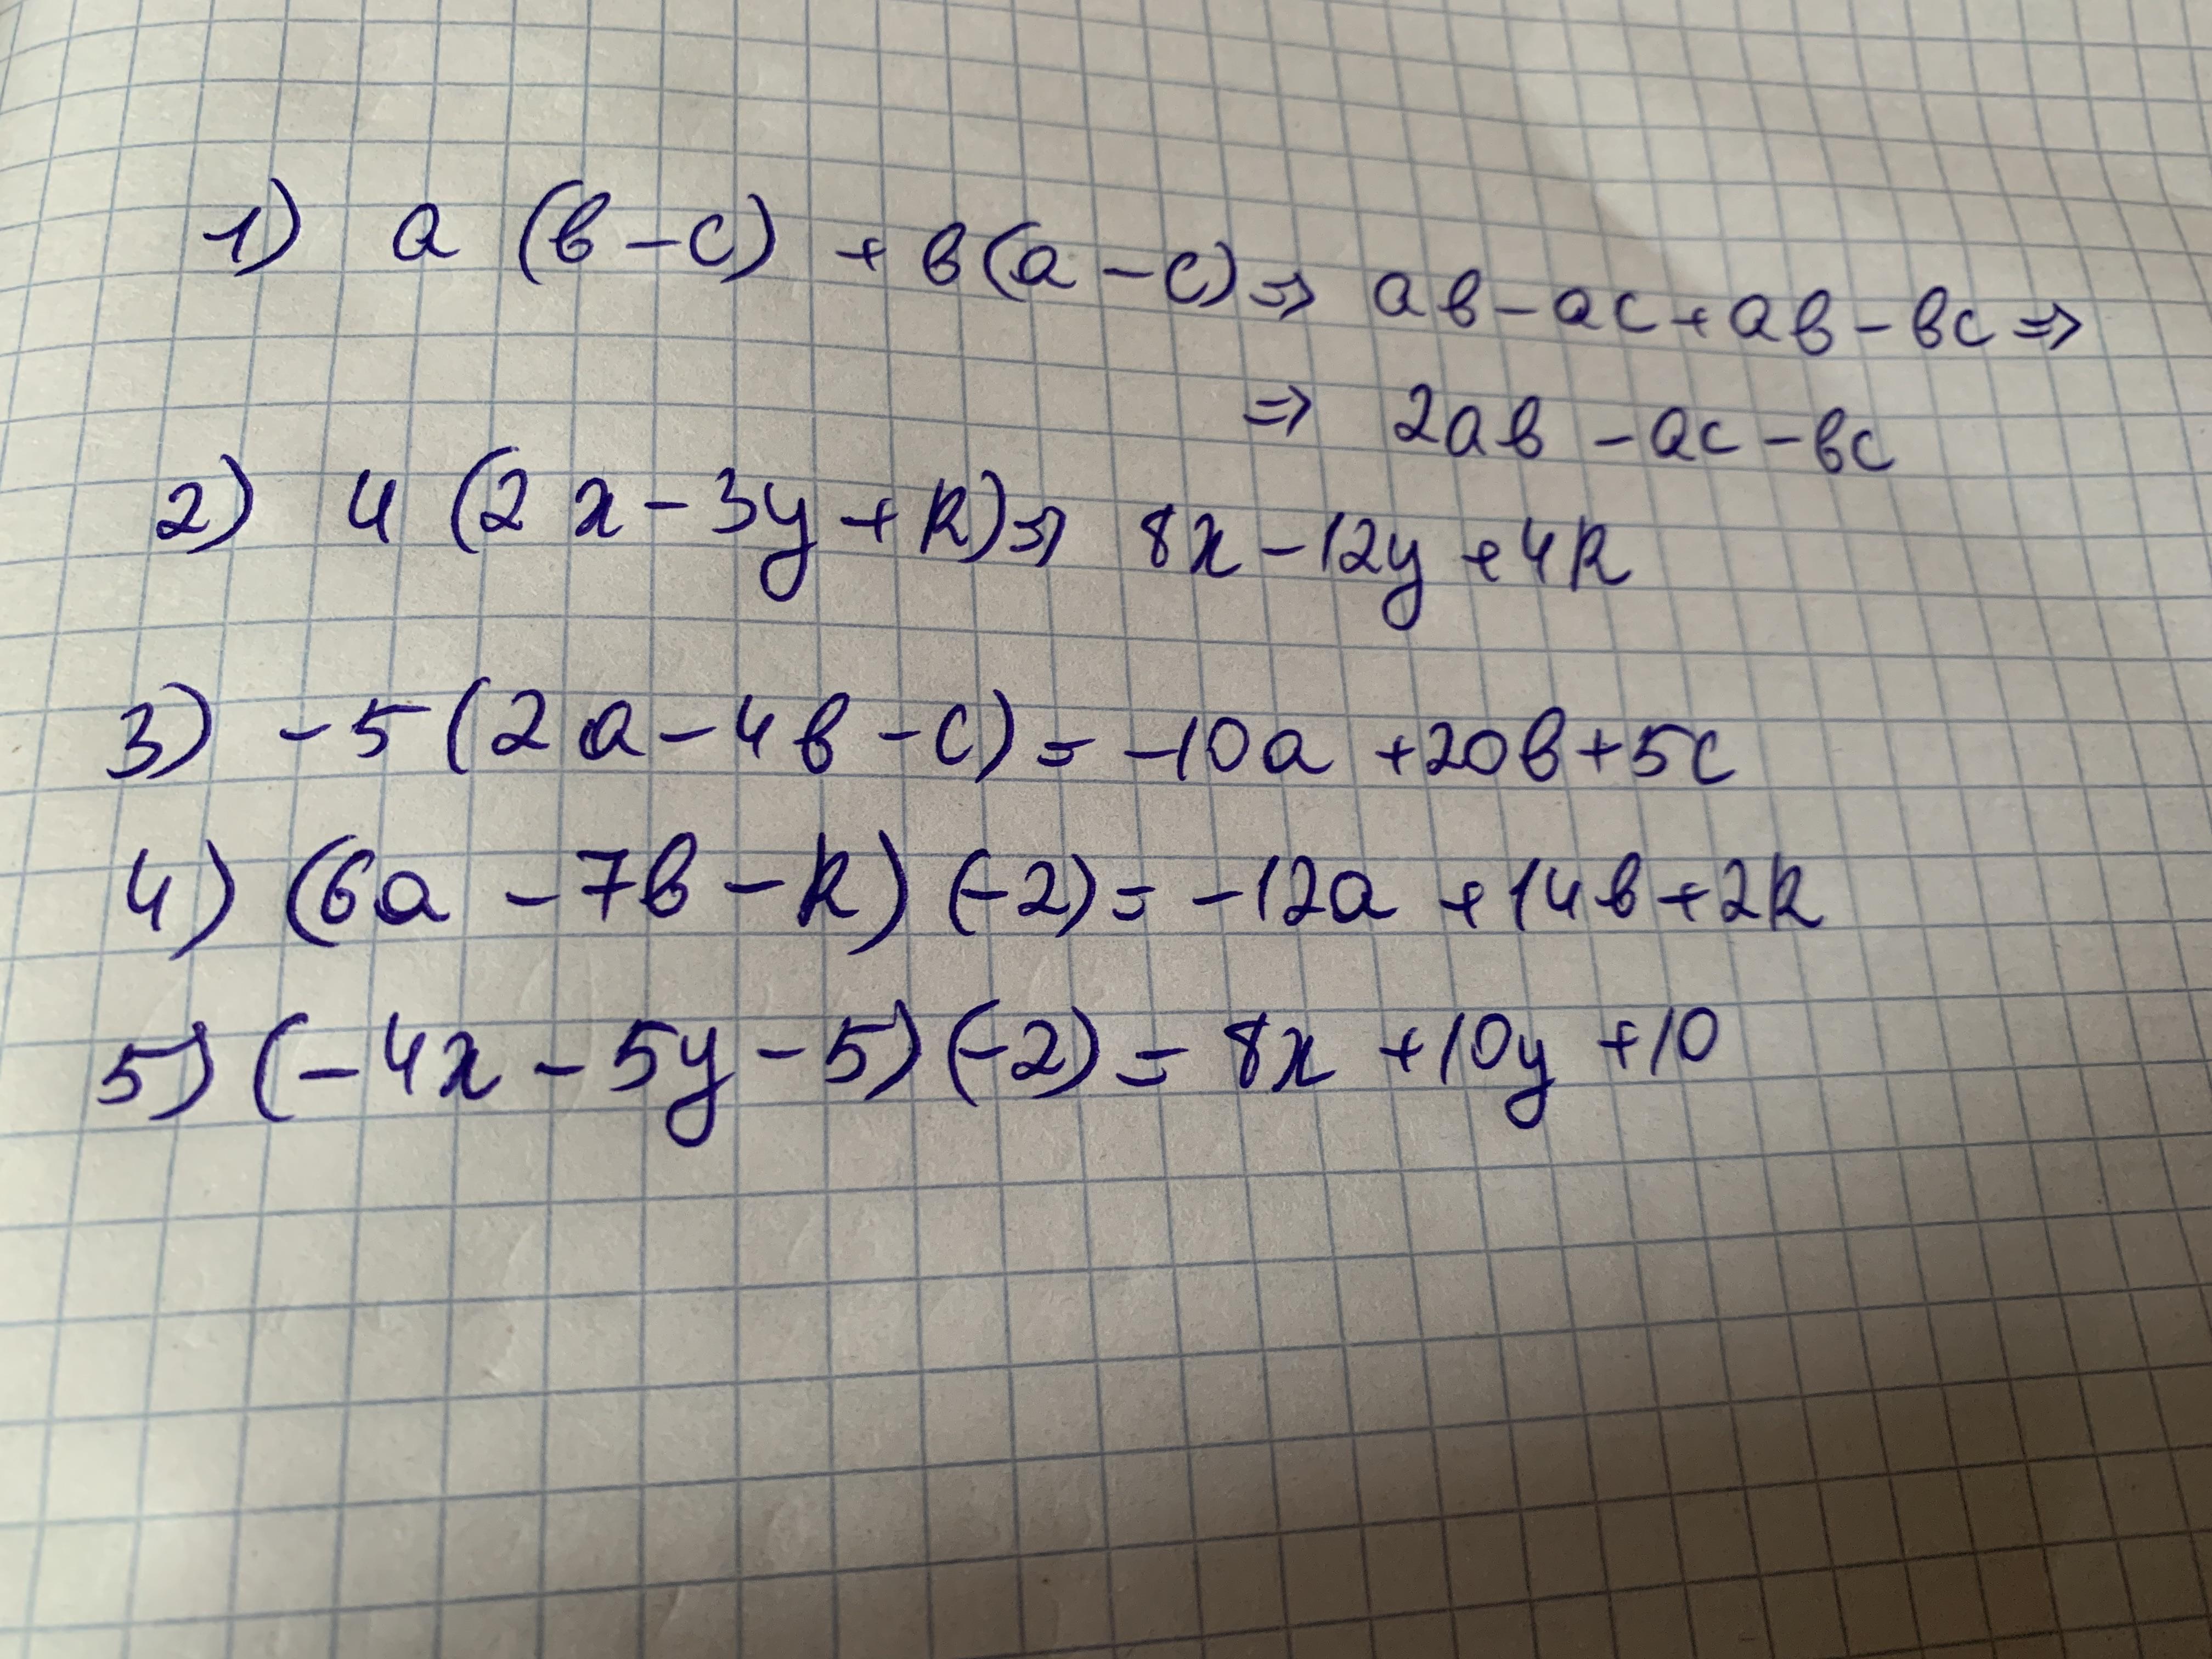 1) a (в-c) + в(a-c) ⇒ aв-ac+aв-вc ⇒
⇒ 2aв -ac-вc
2) 4 (2x-3y+k) ⇒ 8x-12y+4k
3) -5(2a-4в-c) = -10a +20в+5c
4) (6a -7в-k) (-2) = -12a +14в+2k
5) (-4x-5y-5)(-2) = 8x +10y +10